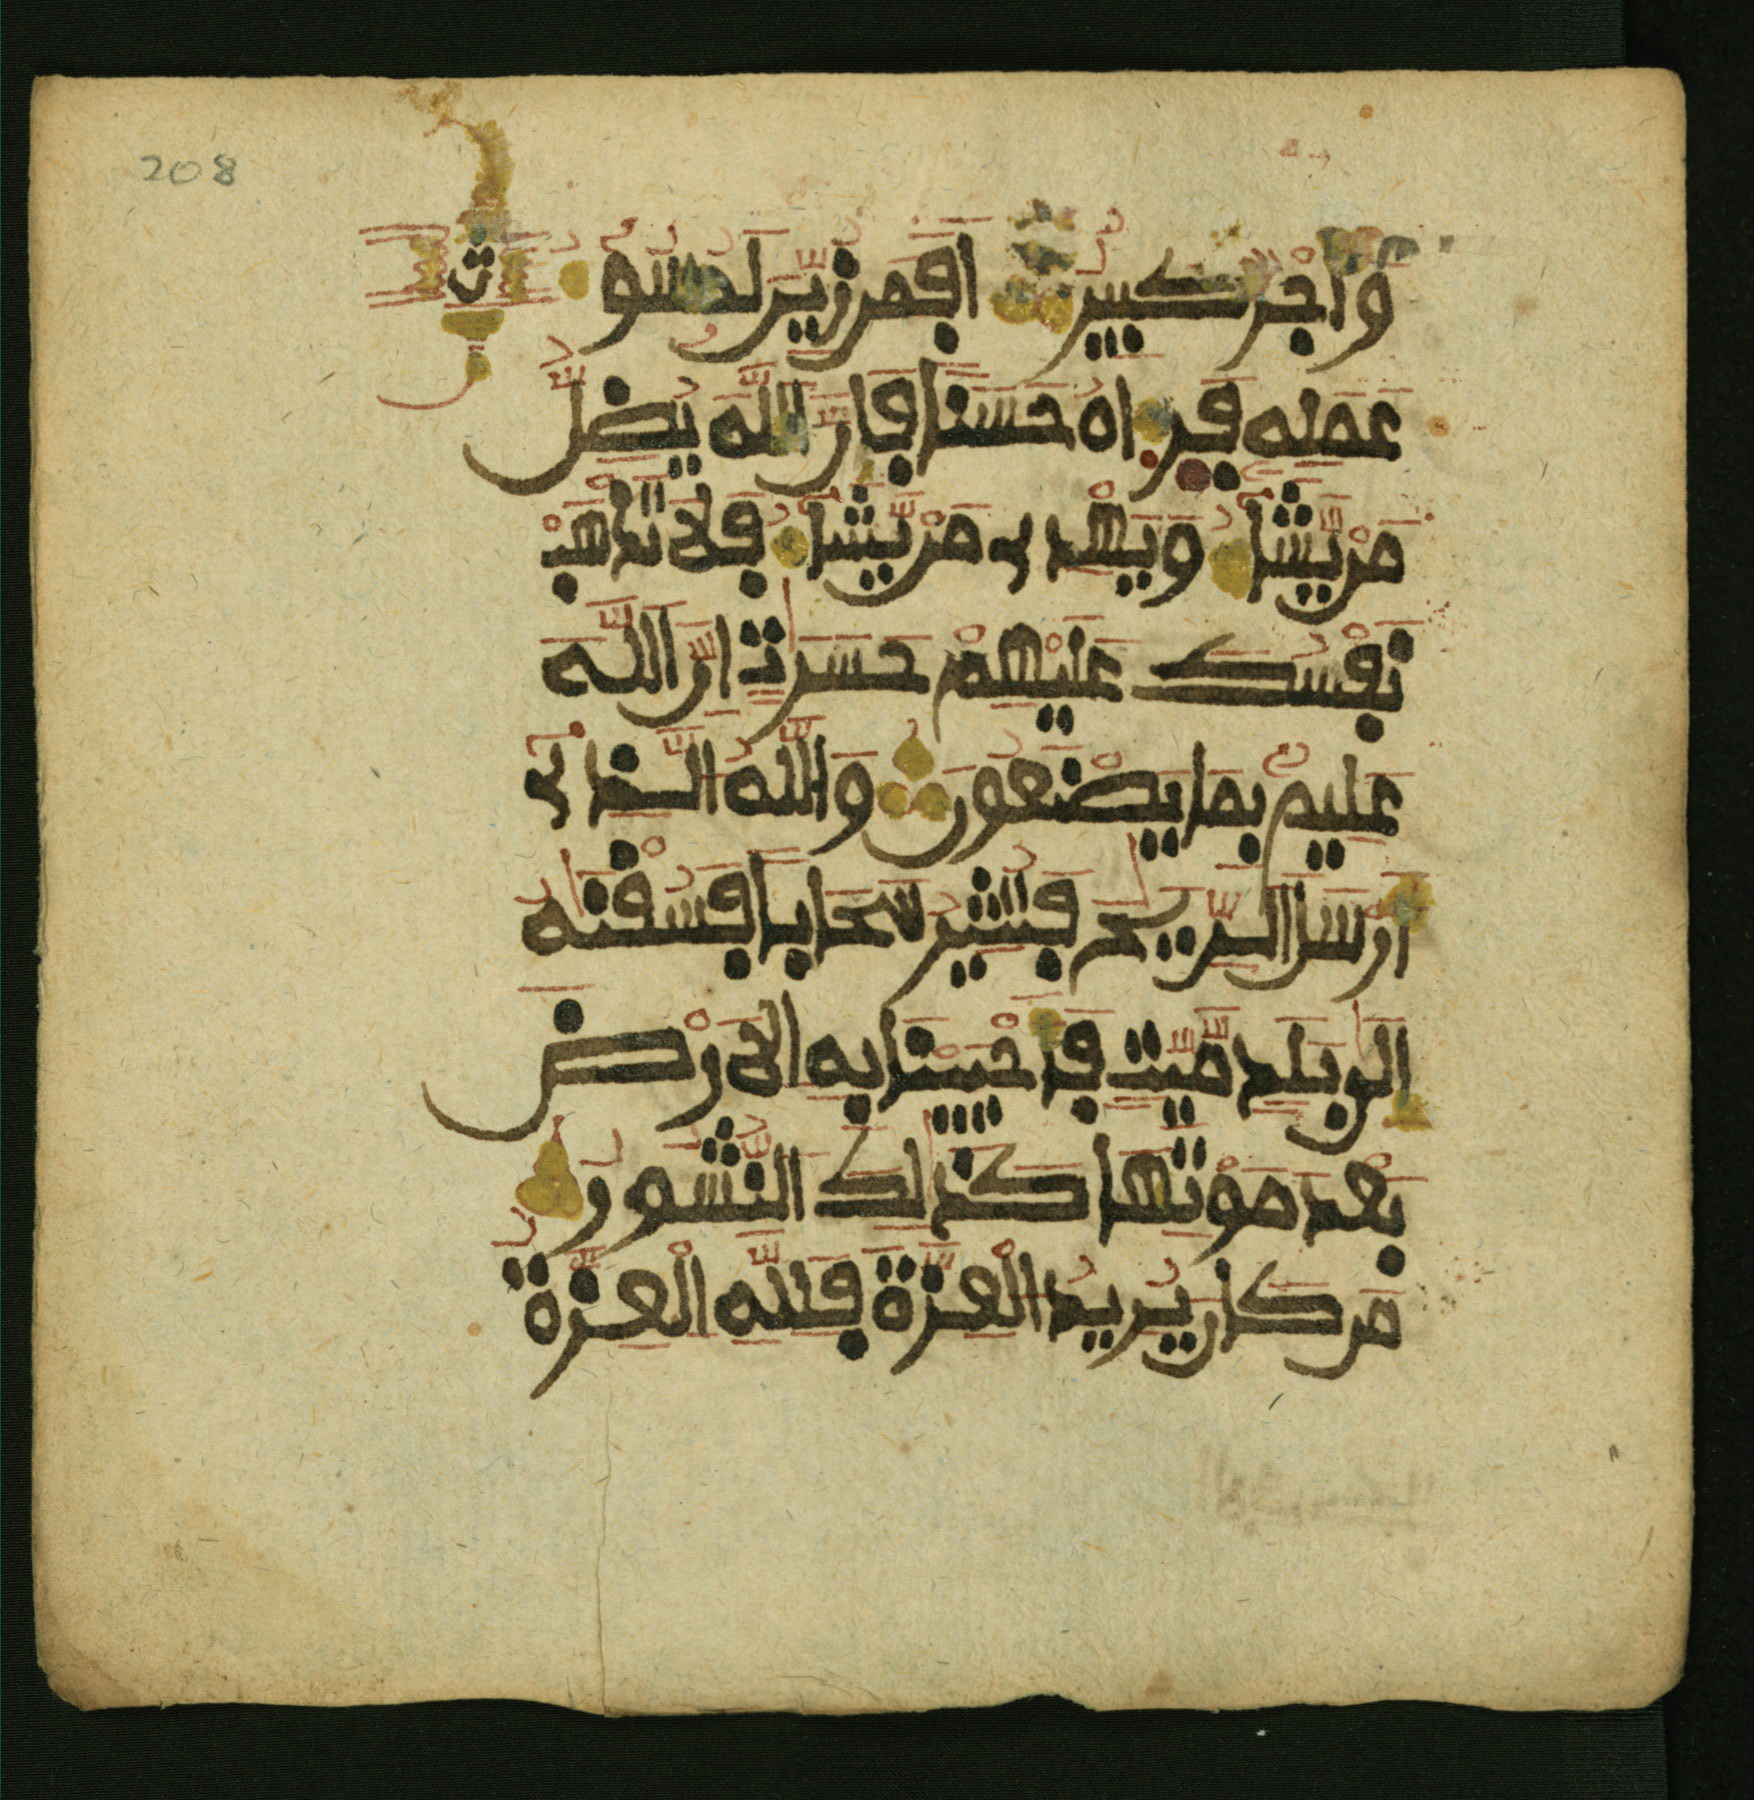 208
وَاَجْرٌ كَبِيرٌ اَفَمَن زُيِّنَ لَهُ سُوُ ث
عَمَلِهِ فَرَاهُ حَسَنًا فَإِنَّ اللَّهَ يُضِلُّ
مَنْ يَّشَا وَيَهْدِي مَنْ يَّشَا فَلَا تَذْهَبْ
نَفْسُكَ عَلَيْهِمْ حَسَرَٰتٍ اِنَّ اللَّهَ
عَلِيمٌ بِمَا يَصْنَعُونَ وَاللَّهُ الَّذِي
أَرْسَلَ الرِّيَٰحَ فَتُثِيرُ سَحَابًا فَسُقْنَٰهُ
إِلَىٰ بَلَدٍ مَّيِّتٍ فَأَحْيَيْنَا بِهِ الَارْضَ
بَعْدَ مَوْتِهَا كَذَٰلِكَ النُّشُورُ
مَن كَانَ يُرِيدُ الْعِزَّةَ فَلِلَّهِ الْعِزَّةُ